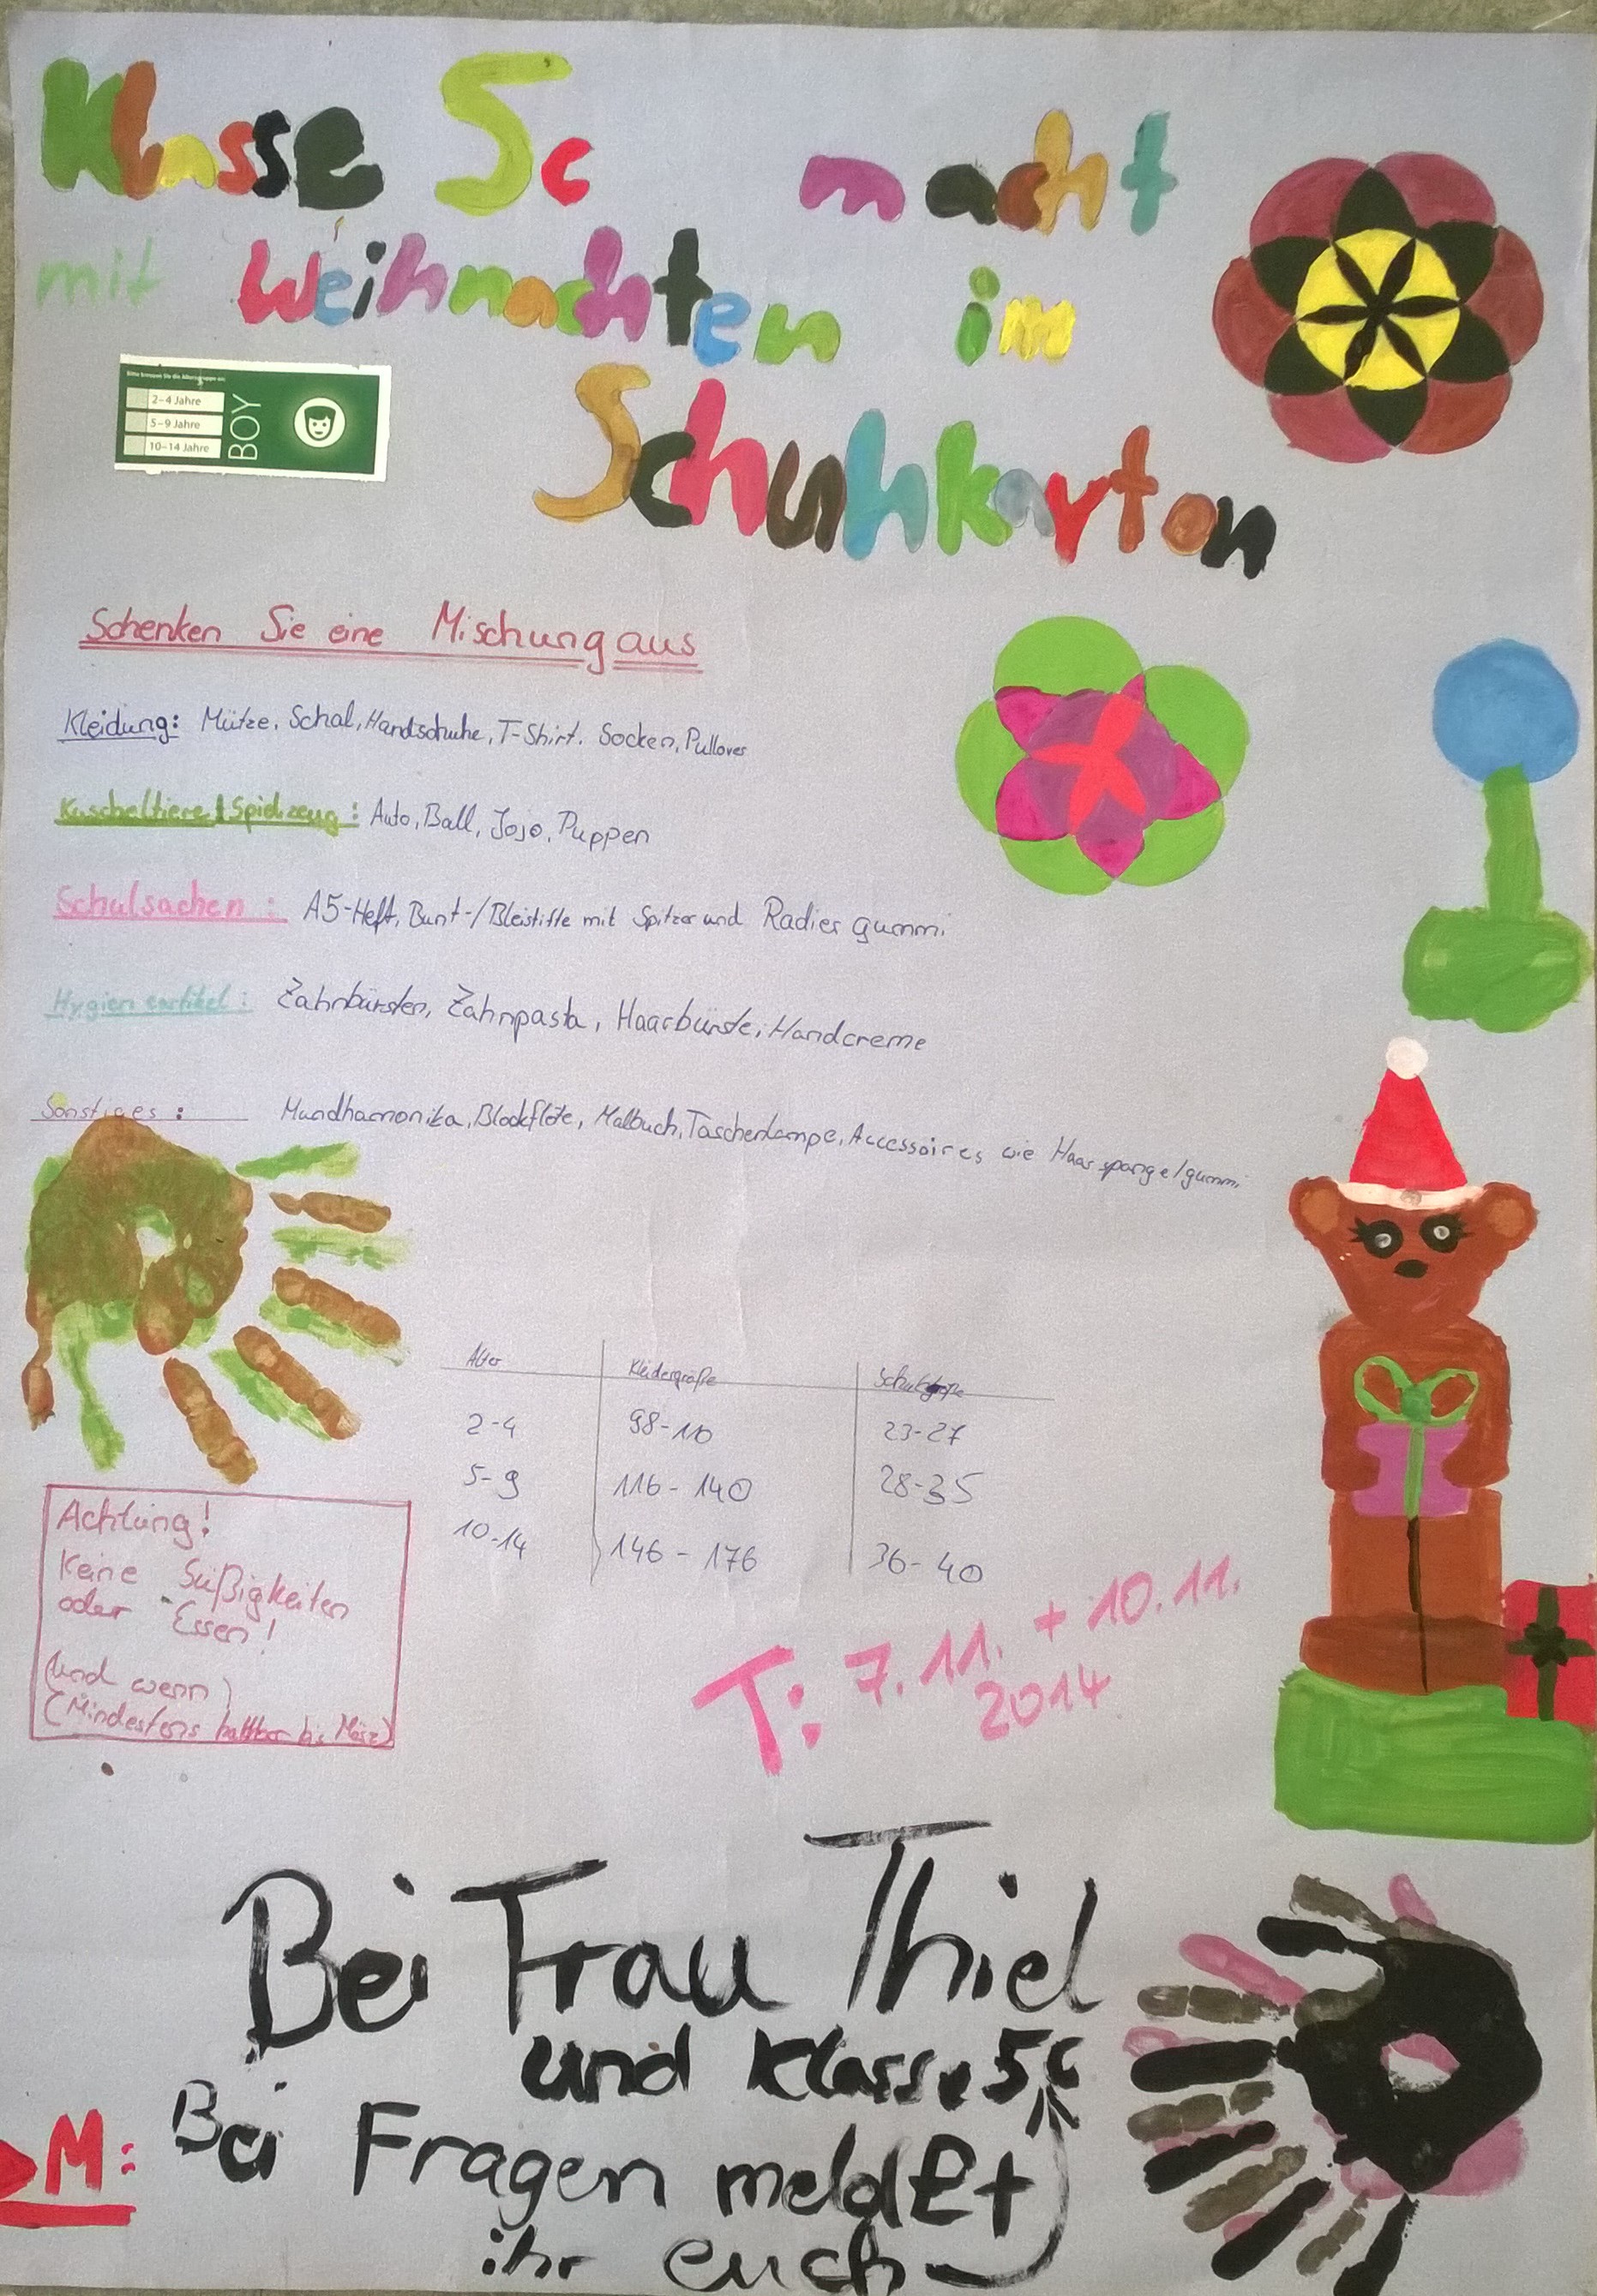 Klasse 5c macht
mit Weihnachten im
Schuhkarton
Bitte kreuzen Sie die Altersgruppe an:
2–4 Jahre
5–9 Jahre
10–14 Jahre
BOY
Schenken Sie eine Mischung aus
Kleidung: Mütze, Schal, Handschuhe, T-Shirt. Socken, Pullover
Kuscheltiere/Spielzeug: Auto, Ball, Jojo, Puppen
Schulsachen: A5-Heft, Bunt-/Bleistifte mit Spitzer und Radiergummi
Hygieneartikel: Zahnbürsten, Zahnpasta, Haarbürste, Handcreme
Sonstiges: Mundhamonika, Blockflöte, Malbuch, Taschenlampe, Accessoires wie Haarspange/gummi
Alter Kleidergröße Schuhgröße
2-4 98-110 23-27
5-9 116-140 28-35
10-14 146-176 36-40
Achtung!
Keine Süßigkeiten
oder Essen!
(Und wenn)
(Mindestens haltbar bis März)
T: 7.11. + 10.11.
2014
Bei Frau Thiel
und Klasse 5c
M: Bei Fragen meldet
ihr euch